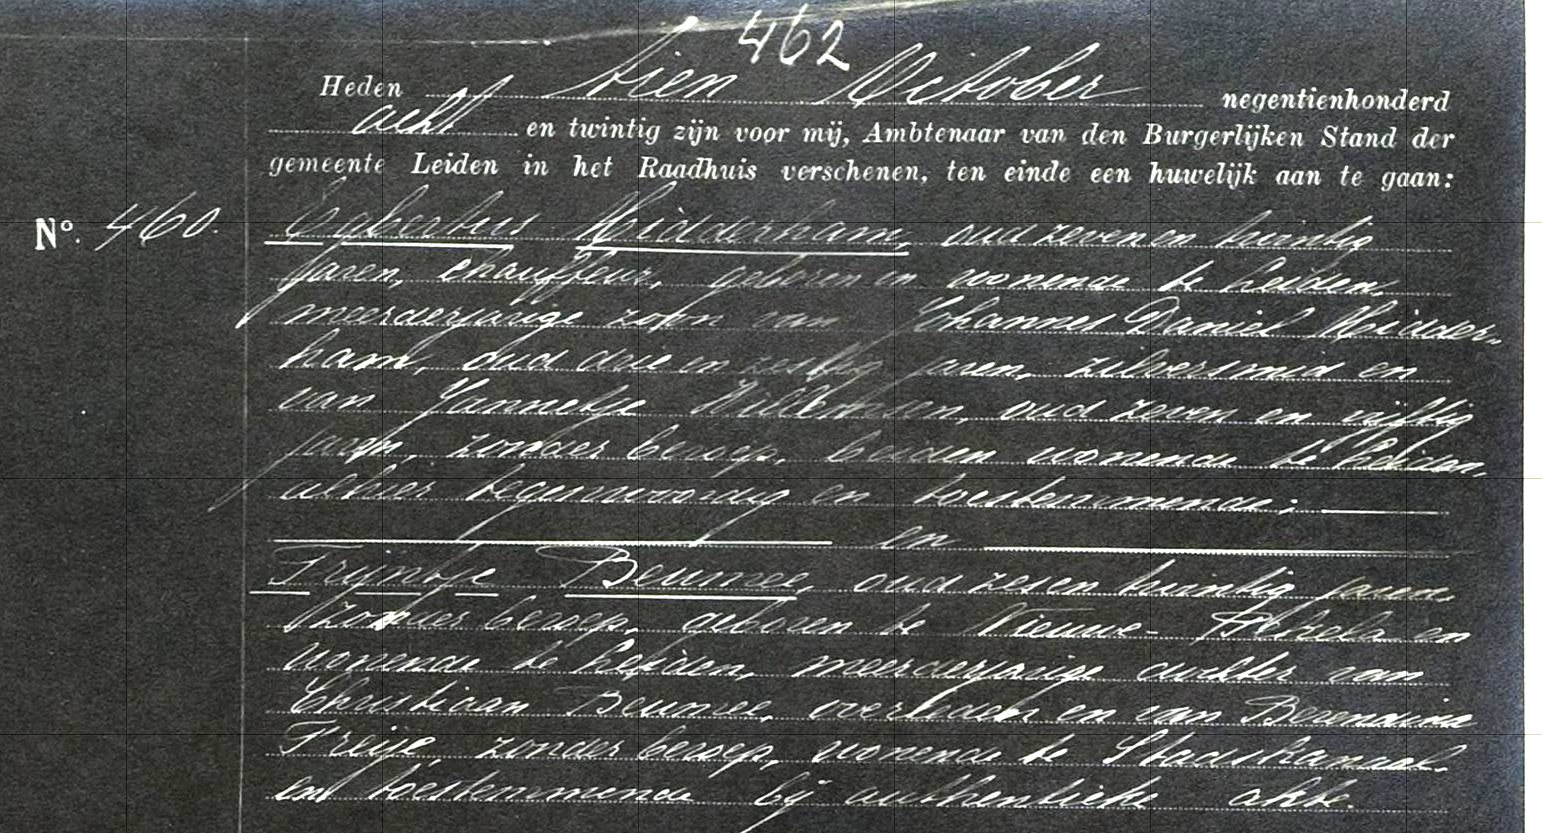 462
Heden tien October negentienhonderd
acht en twintig zijn voor mij, Ambtenaar van den Burgerlijken Stand der
gemeente Leiden in het Raadhuis verschenen, ten einde een huwelijk aan te gaan:
No. 460. Egbertus Ridderham, oud zeven en twintig
jaren, chauffeur, geboren en wonende te Leiden,
meerderjarige zoon van Johannes Daniel Ridder-
ham, oud drie en zestig jaren, zilversmid en
van Jannetje Willemsen, oud zeven en vijftig
jaren, zonder beroep, beiden wonende te Leiden,
alhier tegenwoordig en toestemmende;
en
Trijntje Beumee, oud zes en twintig jaren,
zonder beroep, geboren te Nieuwe- Pekela en
wonende te Leiden, meerderjarige dochter van
Christiaan Beumee, overleden en van Berendina
Freije, zonder beroep, wonende te Stadskanaal
en toestemmende bij authentieke akte.